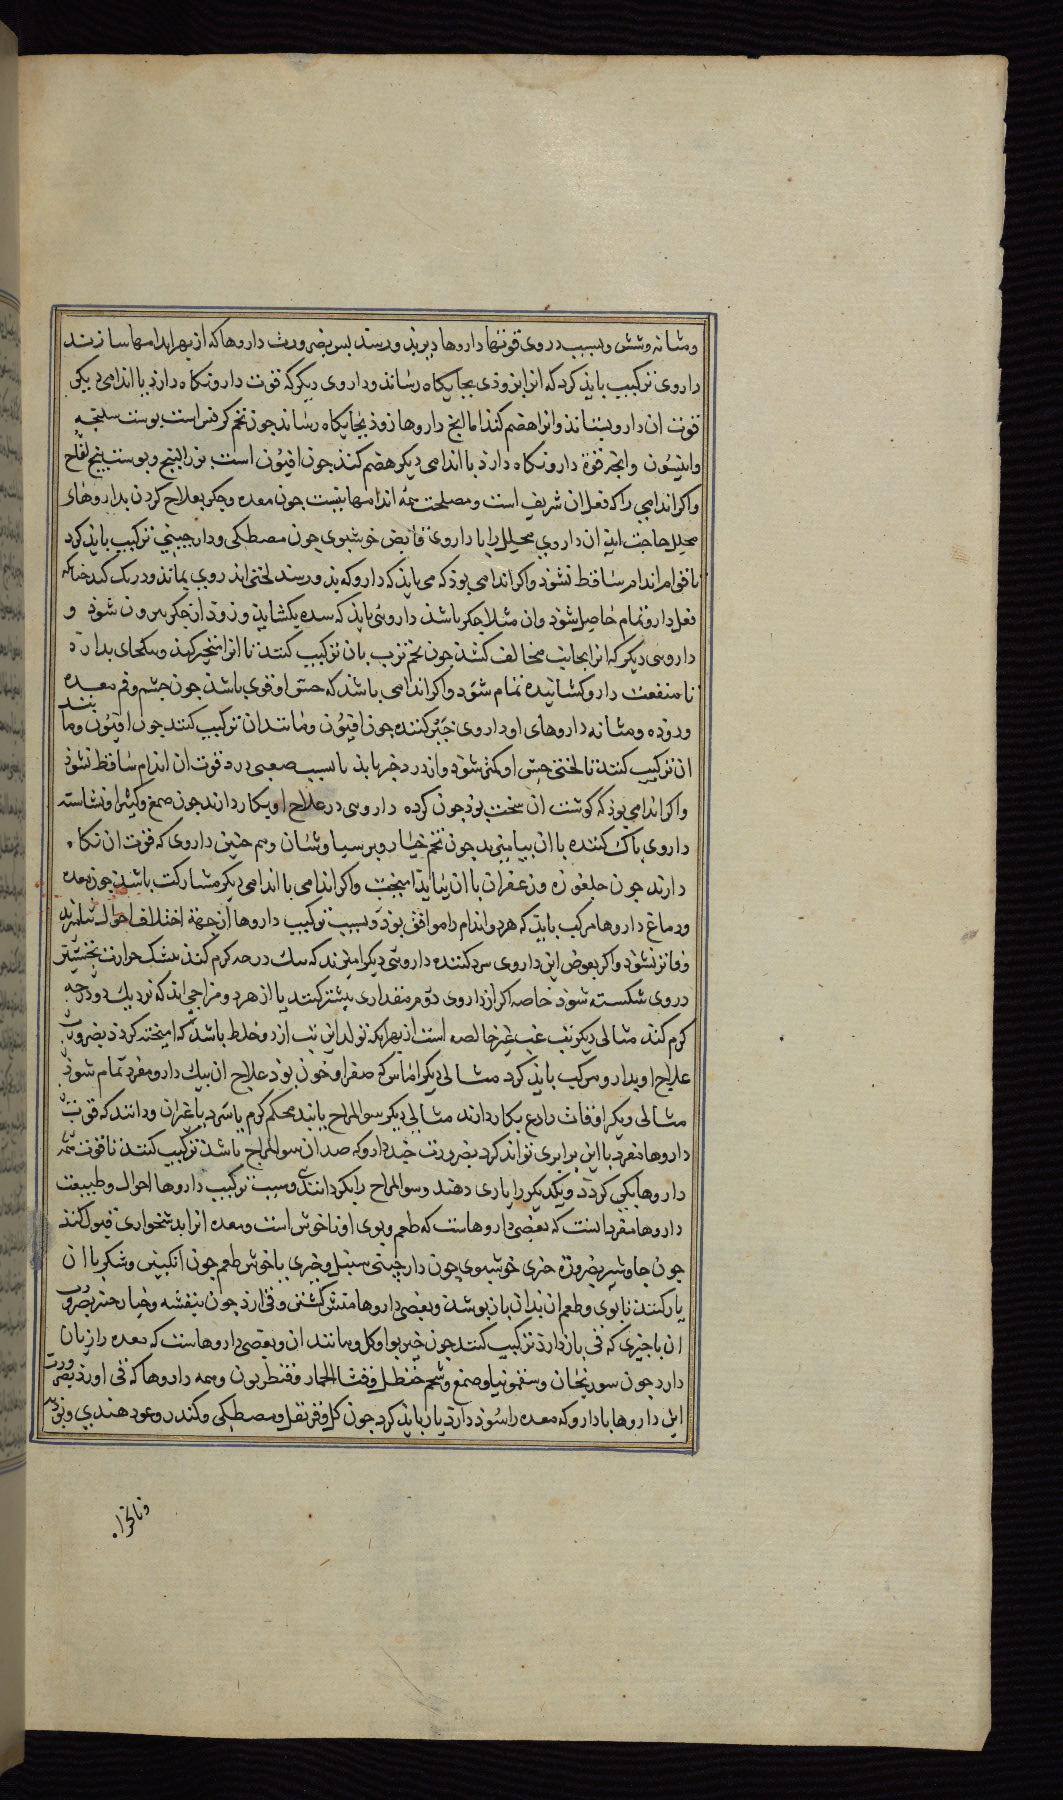 ومثانه وشش وبسبب دروی قوتها داروها دیر بذو رسند بس بضرورت داروها که از بهر اندامها سازند
داروی ترکیب بایذ کرد که انرا بزوذی بجایکاه رساند وداروی دیکر که قوت دارو نکاه دارد یا اندامی دیکر
قوت ان دارو بستاند وانرا هضم کند اما انج داروها زوذ بجایکاه رساند جون تخم کرفس است بوست سلیخه
وانیسون وانجه قوة دارو نکاه دارذ یا اندامی دیکر هضم کند جون افیون است بزر البنج وبوست بیخ لفاح
واکر اندامی را که فعل ان شریف است ومصلحت همه اندامها بتست جون معده وجکر بعلاج کردن بداروهای
محلل حاجت ایذ ان داروی محلل را با داروی قابض خوشبوی جون مصطکی ودارجینی ترکیب بایذ کرد
تا قوام اندام ساقط نشوذ واکر اندامی بوذ که می بایذ که دارو که بذو رسند لختی اندروی بماند ودرنک کند جنانکه
فعل دارو تمام حاصل شوذ وان مثلا جکر باشذ داروئی بایذ که سده بکشاید وزوذ از جکر بیرون شوذ و
داروی دیکر که انرا بجانب مخالف کشذ جون تخم ترب بان ترکیب کنند تا انرا متحیر کند وبیکجای بدارد
تا منفعت دارو کشاینده تمام شوذ واکر اندامی باشذ که حس او قوی باشذ جون جشم وفم معده
وروده ومثانه داروهای او داروی خدر کننده جون افیون ومانند ان ترکیب کنند جون افیون ومانند
ان ترکیب کنند تا لختی حس او کمتر شوذ واندر دخر بابذ تا بسبب صعبی درد قوت ان اندام ساقط نشوذ
واکر اندامی بوذ که کوشت ان سخت بوذ جون کرده داروی در علاج او بکار دارند جون صمغ وکثیرا ونشاسته
داروی باک کننده با ان بیامیزند جون تخم خیار وبرسیاوشان وهم جنین داروی که قوت ان نکاه
دارند جون جلغوزه وزعفران با ان بباید امیخت واکر اندامی با اندامی دیکر مشارکت باشذ جون معده
ودماغ داروها مرکب باید که هر دو اندام را موافق بوذ وبسبب ترکیب داروها از جهة اختلاف احوال
وفاتر نشوذ واکر بعوض این داروی سرد کننده داروئی دیکر امیزند که بیک درجه کرم کند بیشک حرارت نخستین
دروی شکسته شوذ خاصه اکر از داروی دوم مقداری بیشتر کنند یا از هر دو مزاجی اید که نزدیک دو درجه
کرم کند مثالی دیکر تب غب غیر خالصه است از بهر انکه تولد این تب از دو خلط باشذ که امیخته کردد بضرورت
علاج او بدارو مرکب بایذ کرد مثالی دیکر اماس که صفرا وخون بوذ علاج ان بیک دارو مفرد تمام شوذ
مثالی دیکر اوقات رادع بکار دارند مثالی دیکر سوالمزاج یابند محکم کرم یا سرد یا غیر ان ودانند که قوت
داروها مفرد با این برابری تواند کرد بضرورت جند دارو که ضد ان سوالمزاج باشذ ترکیب کنند تا قوت همه
داروها یکی کردد ویکدیکر را یاری دهند وسوالمزاج را بکردانند وسبب ترکیب داروها احوال وطبیعت
داروها مفرد است که بعضی داروهاست که طعم وبوی او ناخوش است ومعده انرا بدشخواری قبول کند
جون جاوشیر بضرورة جیزی خوشبوی جون دارجینی سنبل وجیزی یا خوش طعم جون انکبین وشکر با ان
یار کنند تا بوی وطعم ان بذان بان بوشذ وبعضی داروها منش کشتن وقی ارذ جون بنفشه وخیارجنبر بضرورت
ان با جیزی که قی باز دارذ ترکیب کنند جون خیربوا وکل ومانند ان وبعضی داروهاست که معده را زیان
دارد جون سورنجان وسقمونیا وصمغ وشحم حنظل وقثاالحمار وقنطریون وهمه داروها که قی اورذ بضرورت
این داروها با دارو که معده را سوذ دارد یار بایذ کرد جون کل وقرنفل ومصطکی وکندر وعود هندی